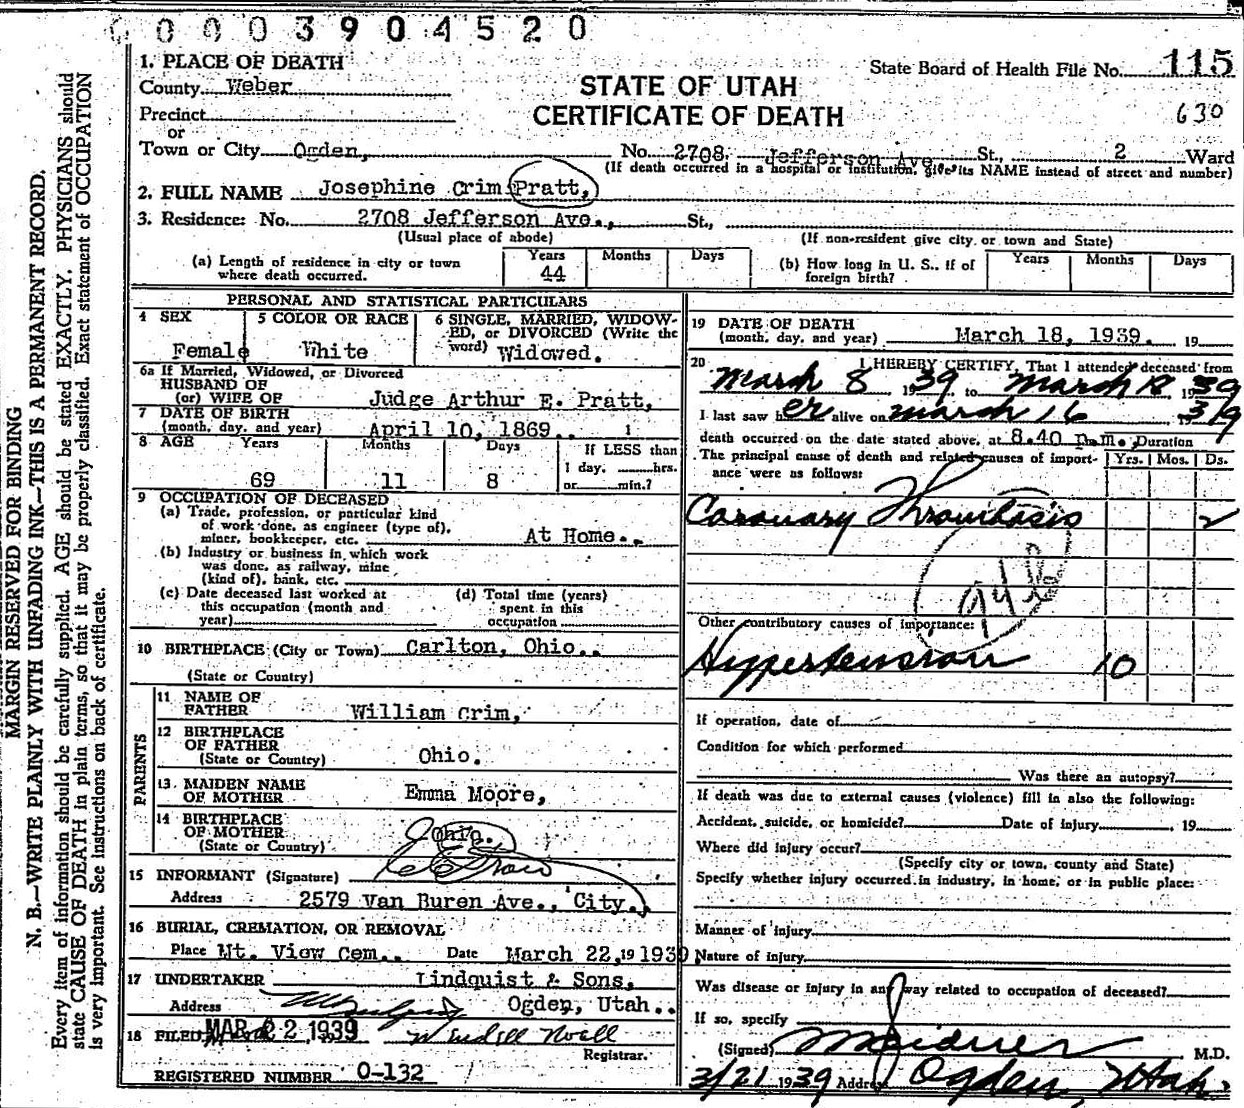 00003904520
1. PLACE OF DEATH
County Weber
State Board of Health File No. 115
STATE OF UTAH
CERTIFICATE OF DEATH
630
Precinct
or
Town or City Ogden, No. 2708. Jefferson Ave St., 2 Ward
(If death occurred in a hospital or institution, give its NAME instead of street and number)
2. FULL NAME Josephine Crim Pratt,
3. Residence: No. 2708 Jefferson Ave., St.,
(Usual place of abode) (If non-resident give city or town and State)
(a) Length of residence in city or town where death occurred. Years 44 Months Days
(b) How long in U. S., if of foreign birth? Years Months Days
PERSONAL AND STATISTICAL PARTICULARS
4 SEX Female
5 COLOR OR RACE White
6 SINGLE, MARRIED, WIDOWED, or DIVORCED (Write the word) Widowed.
6a If Married, Widowed, or Divorced
HUSBAND OF
(or) WIFE OF Judge Arthur E. Pratt,
7 DATE OF BIRTH
(month, day, and year) April 10, 1869.
8 AGE Years 69 Months 11 Days 8
If LESS than
1 day, hrs.
or min.?
9 OCCUPATION OF DECEASED
(a) Trade, profession, or particular kind
of work done, as engineer (type of),
miner, bookkeeper, etc. At Home..
(b) Industry or business in which work
was done, as railway, mine
(kind of), bank, etc.
(c) Date deceased last worked at
this occupation (month and
year)
(d) Total time (years)
spent in this
occupation
10 BIRTHPLACE (City or Town) Carlton, Ohio..
(State or Country)
PARENTS
11 NAME OF
FATHER William Crim,
12 BIRTHPLACE
OF FATHER
(State or Country) Ohio.
13. MAIDEN NAME
OF MOTHER Emma Moore,
14 BIRTHPLACE
OF MOTHER
(State or Country) Ohio.
15 INFORMANT (Signature)
Address 2579 Van Buren Ave., City.,
16 BURIAL, CREMATION, OR REMOVAL
Place Mt. View Cem.. Date March 22, 19 1939
17 UNDERTAKER Lindquist & Sons,
Address Ogden, Utah..
18 FILED MAR 22 1939
Registrar.
REGISTERED NUMBER 0-132
19 DATE OF DEATH
(month, day, and year) March 18, 1939. 19
20 I HEREBY CERTIFY, That I attended deceased from
March 8 1939 to March 18 1939
I last saw her alive on March 16 1939
death occurred on the date stated above, at 8.40 p.m. Duration
The principal cause of death and related causes of importance were as follows: Yrs. Mos. Ds.
Coronary Thrombosis 2
Other contributory causes of importance:
Hypertension 10
If operation, date of
Condition for which performed
Was there an autopsy?
If death was due to external causes (violence) fill in also the following:
Accident, suicide, or homicide? Date of injury 19
Where did injury occur?
(Specify city or town, county and State)
Specify whether injury occurred in industry, in home, or in public place:
Manner of injury
Nature of injury
Was disease or injury in any way related to occupation of deceased?
If so, specify
(Signed) M.D.
3/21 1939 Address Ogden, Utah.
MARGIN RESERVED FOR BINDING
N. B.—WRITE PLAINLY WITH UNFADING INK—THIS IS A PERMANENT RECORD.
Every item of information should be carefully supplied. AGE should be stated EXACTLY. PHYSICIANS should
state CAUSE OF DEATH in plain terms, so that it may be properly classified. Exact statement of OCCUPATION
is very important. See instructions on back of certificate.